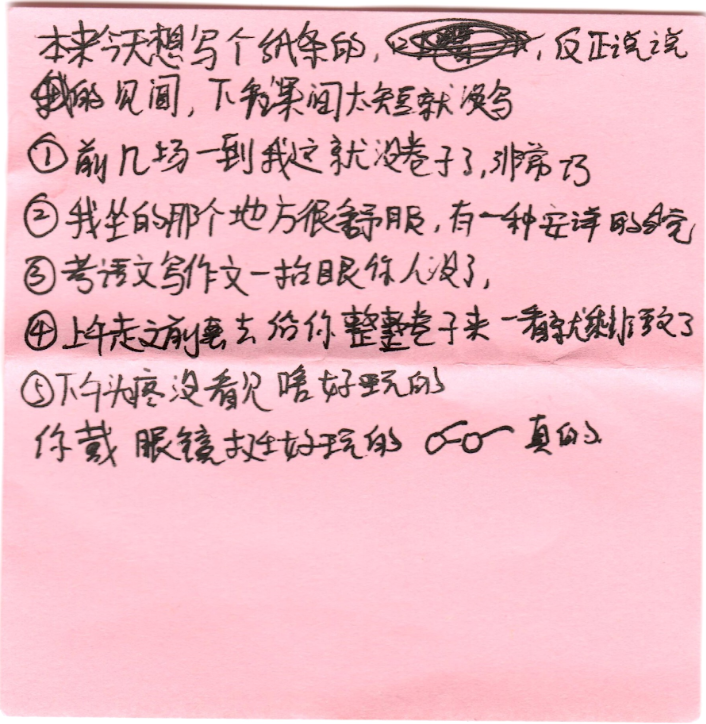 本来今天想写个纸条的，，反正说说
我的见闻，下午课间太短就没写
①前几场一到我这就没卷子了，非常巧
②我坐的那个地方很舒服，有一种安详的感觉
③考语文写作文一抬眼你人没了，
④上午走之前要去给你整整卷子夹 一看就剩语文了
⑤下午头疼没看见啥好玩的
你戴眼镜挺好玩的 真的